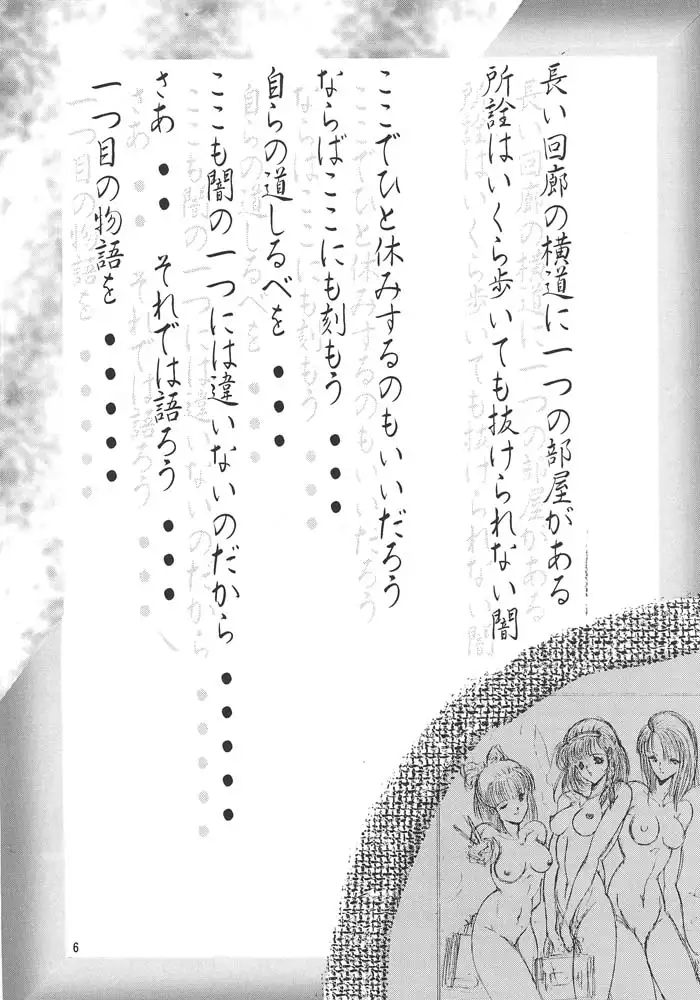 長い回廊の横道に一つの部屋がある
所詮はいくら歩いても抜けられない闇
ここでひと休みするのもいいだろう
ならばここにも刻もう・・・
自らの道しるべを・・・
ここも闇の一つには違いないのだから・・・・・
さあ・・それでは語ろう・・・
一つ目の物語を・・・・・
6